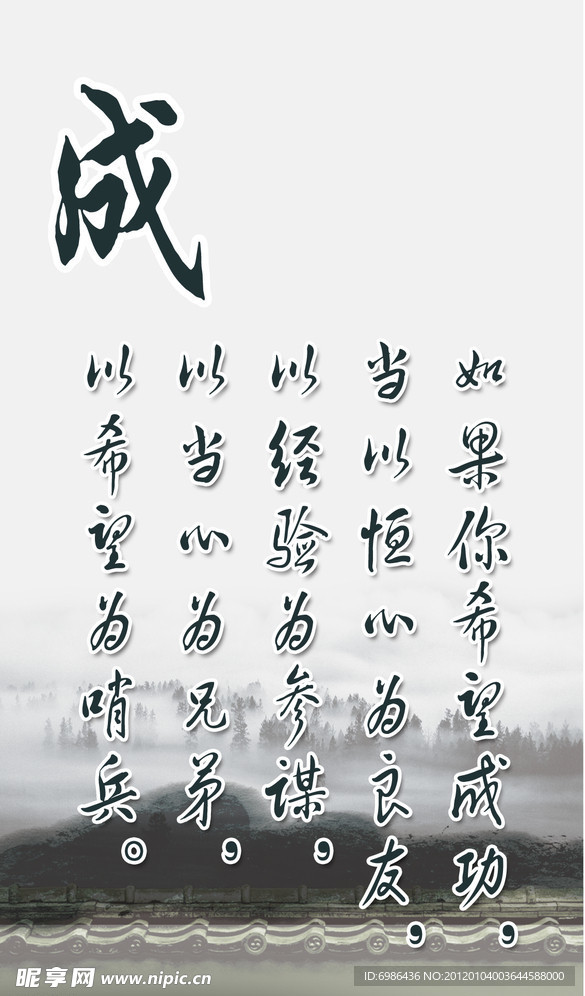 成
如果你希望成功，
当以恒心为良友，
以经验为参谋，
以当心为兄弟，
以希望为哨兵。
昵享网 www.nipic.cn
ID:6986436 NO:20120104003644588000